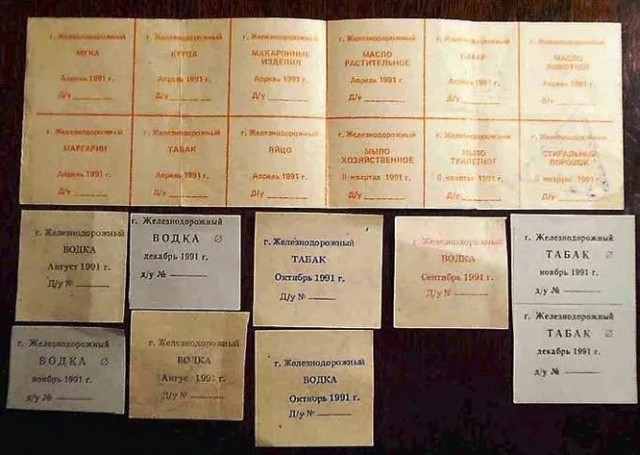 г. Железнодорожный
МУКА
Апрель 1991 г.
Д/у
г. Железнодорожный
КРУПА
Апрель 1991 г.
Д/у
г. Железнодорожный
МАКАРОННЫЕ
ИЗДЕЛИЯ
Апрель 1991 г.
Д/у
г. Железнодорожный
МАСЛО
РАСТИТЕЛЬНОЕ
Апрель 1991 г.
Д/у
г. Железнодорожный
САХАР
Апрель 1991 г.
Д/у
г. Железнодорожный
МАСЛО
ЖИВОТНОЕ
Апрель 1991 г.
Д/у
г. Железнодорожный
МАРГАРИН
Апрель 1991 г.
Д/у
г. Железнодорожный
ТАБАК
Апрель 1991 г.
Д/у
г. Железнодорожный
ЯЙЦО
Апрель 1991 г.
Д/у
г. Железнодорожный
МЫЛО
ХОЗЯЙСТВЕННОЕ
II квартал 1991 г.
Д/у
г. Железнодорожный
МЫЛО
ТУАЛЕТНОЕ
II квартал 1991 г.
Д/у
г. Железнодорожный
СТИРАЛЬНЫЙ
ПОРОШОК
II квартал 1991 г.
Д/у
г. Железнодорожный
ВОДКА
Август 1991 г.
Д/у №
г. Железнодорожный
ВОДКА
декабрь 1991 г.
д/у №
г. Железнодорожный
ТАБАК
Октябрь 1991 г.
Д/у №
г. Железнодорожный
ВОДКА
Сентябрь 1991 г.
Д/у №
г. Железнодорожный
ТАБАК
ноябрь 1991 г.
д/у №
г. Железнодорожный
ТАБАК
декабрь 1991 г.
д/у №
г. Железнодорожный
ВОДКА
ноябрь 1991 г.
д/у №
г. Железнодорожный
ВОДКА
Август 1991 г.
Д/у №
г. Железнодорожный
ВОДКА
Октябрь 1991 г.
Д/у №